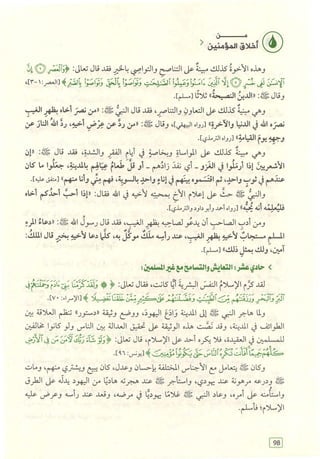 من
أخلاق المؤمنين
وهذه الأخوة كذلك مبنية على التناصح والتواصي بالخير فقد قال تعالى: ﴿وَالْعَصْرِ ۝ إِنَّ
الْإِنسَانَ لَفِي خُسْرٍ ۝ إِلَّا الَّذِينَ آمَنُوا وَعَمِلُوا الصَّالِحَاتِ وَتَوَاصَوْا بِالْحَقِّ وَتَوَاصَوْا بِالصَّبْرِ﴾ [العصر: ١-٣]،
وقال ﷺ: «الدين النصيحة» ثلاثًا [مسلم].
وهي مبنية كذلك على التعاون والتناصر، فقد قال النبي ﷺ: «من نصر أخاه بظهر الغيب
نصره الله في الدنيا والآخرة» [رواه البيهقي]، وقال ﷺ: «من رد عن عرض أخيه، رد الله النار عن
وجهه يوم القيامة» [رواه الترمذي].
وهي مبنية كذلك على المواساة وبخاصة في أيام الفقر والشدة، فقد قال ﷺ: «إن
الأشعريين إذا أرملوا في الغزو - أي نفد زادهم - أو قل طعام عيالهم بالمدينة، جعلوا ما كان
عندهم في ثوب واحد، ثم اقتسموه بينهم في إناء واحد بالسوية، فهم مني وأنا منهم» [متفق عليه].
والنبي ﷺ حث على إعلام الأخ بمحبته لأخيه في الله فقال: «إذا أحب أحدكم أخاه
فليعلمه أنه يحبه» [رواه أحمد وأبو داود والترمذي].
ومن أدب الصاحب أن يدعو لصاحبه بظهر الغيب، فقد قال رسول الله ﷺ: «دعاء المرء
المسلم مستجاب لأخيه بظهر الغيب، عند رأسه ملك موكل به، كلما دعا لأخيه بخير قال الملك:
آمين، ولك بمثل ذلك» [مسلم].
› حادي عشر: التعايش والتسامح مع غير المسلمين:
لقد كرّم الإسلام النفس البشرية أيًّا كانت، فقال تعالى: ﴿وَلَقَدْ كَرَّمْنَا بَنِي آدَمَ وَحَمَلْنَاهُمْ فِي
الْبَرِّ وَالْبَحْرِ وَرَزَقْنَاهُم مِّنَ الطَّيِّبَاتِ وَفَضَّلْنَاهُمْ عَلَىٰ كَثِيرٍ مِّمَّنْ خَلَقْنَا تَفْضِيلًا﴾ [الإسراء: ٧٠].
ولما هاجر النبي ﷺ إلى المدينة وادع اليهود، ووضع وثيقة «دستور» تنظم العلاقة بين
الطوائف في المدينة، وقد نصت هذه الوثيقة على تحقيق العدالة بين الناس ولو كانوا مخالفين
للمسلمين في العقيدة، فلا يكره أحد على الإسلام، قال تعالى: ﴿وَلَوْ شَاءَ رَبُّكَ لَآمَنَ مَن فِي الْأَرْضِ
كُلُّهُمْ جَمِيعًا أَفَأَنتَ تُكْرِهُ النَّاسَ حَتَّىٰ يَكُونُوا مُؤْمِنِينَ﴾ [يونس: ٩٩].
وكان ﷺ يتعامل مع الأجناس المختلفة بإحسان وعدل، كان يبيع ويشتري منهم، ومات
ﷺ ودرعه مرهونة عند يهودي، واستأجر ﷺ عند هجرته هاديًا من اليهود يدله على الطرق
واستأمنه على أمره، وعاد النبي ﷺ غلامًا يهوديًّا في مرضه، وقعد عند رأسه وعرض عليه
الإسلام؛ فأسلم.
98